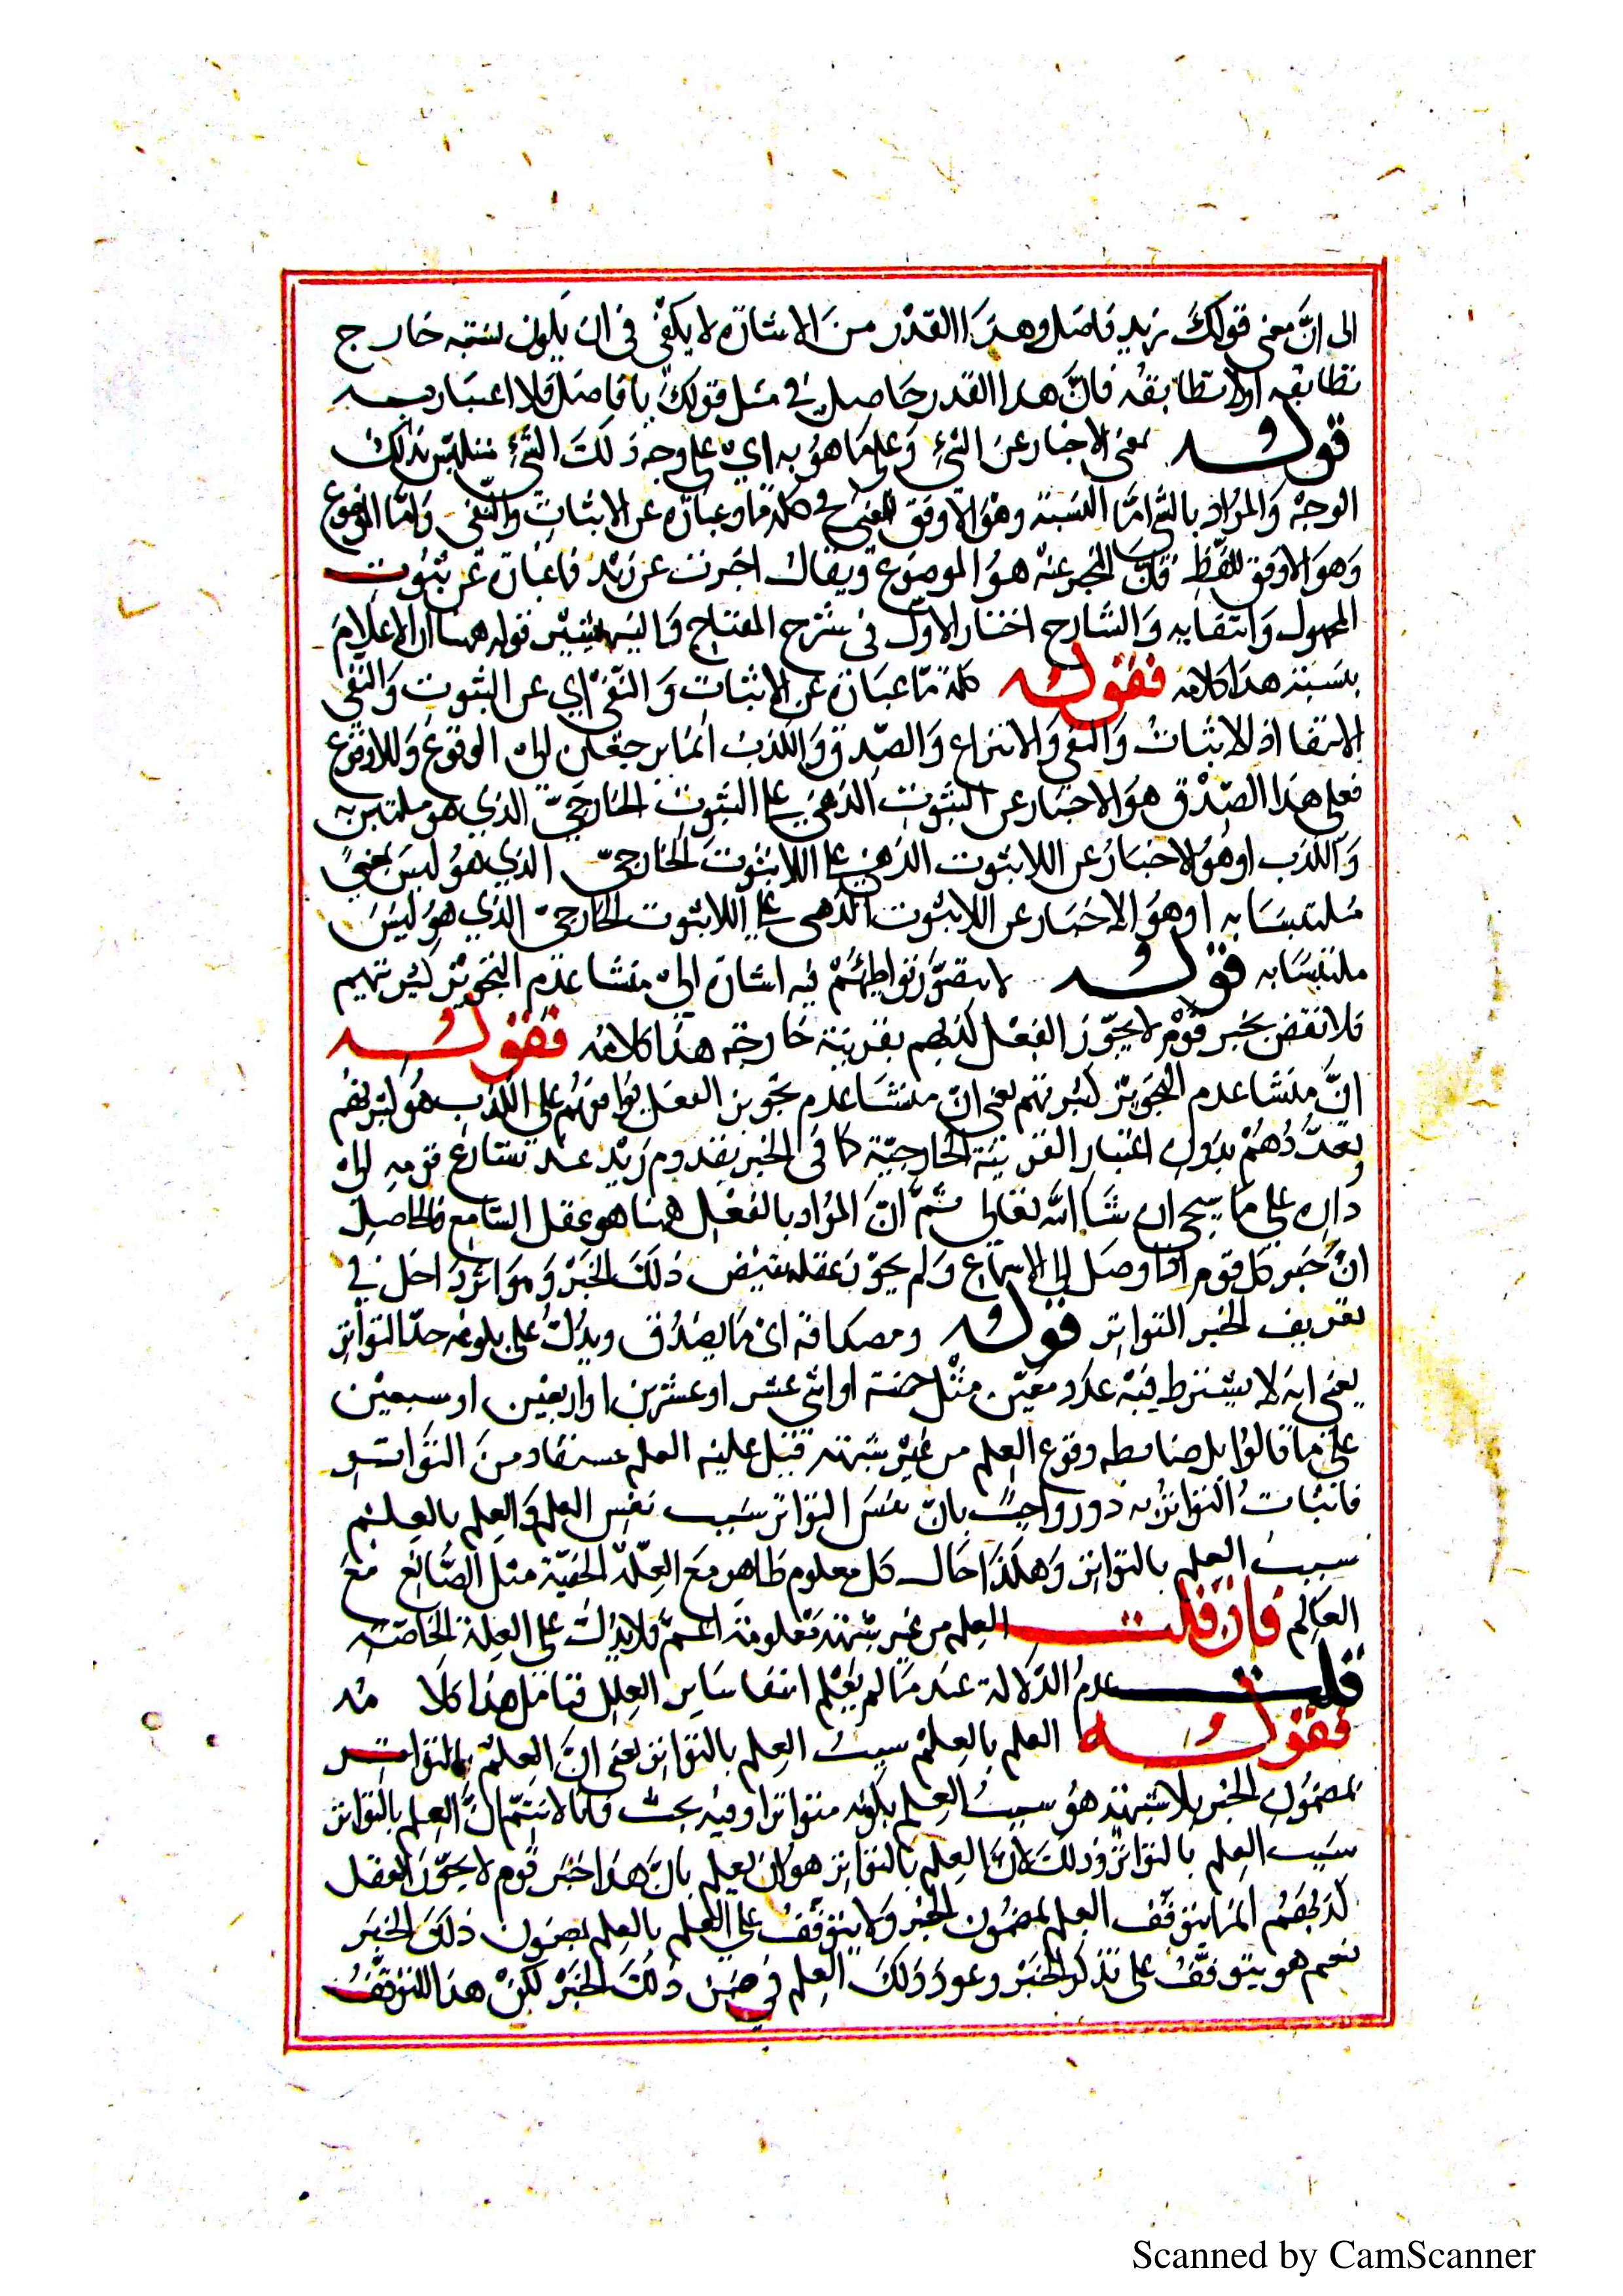 الى انّ معنى قولك زيد فاضل وهذا القدر من الاشارة لا يكفى فى ان يكون لنسبته خارج
تطابقه اولا تطابقه فانّ هذا القدر حاصل في مثل قولك يا فاضل فلا اعتبار به
قوله بمعنى الاخبار عن الشئ وعلى ما هو به اي على وجه ذلك الشئ متلبّس بذلك
الوجه والمراد بالشئ امّا النسبة وهو الاوفق للمعنى فكلمة ما عبارة عن الاثبات والنفى وامّا الموضوع
وهو الاوفق للفظ فانّ المخبر عنه هو الموضوع ويقال اخبرت عن زيد فما عبارة عن ثبوت
المحمول وانتفائه والشارح اختار الاول فى شرح المفتاح واليه يشير قوله ههنا اى الاعلام
بنسبة هذا كلامه فقوله كلمة ما عبارة عن الاثبات والنفى اي عن الثبوت والنفى
الانتفا اذ للاثبات والنفى والانتزاع والصدق والكذب انما يرجعان الى الوقوع واللاوقوع
فعلى هذا الصدق هو الاخبار عن الثبوت الذهنى على الثبوت الخارجىّ الذي هو ملتبس به
والكذب او هو الاخبار عن اللاثبوت الذهنى على اللاثبوت الخارجىّ الذي هو ليس
ملتبسا به او هو الاخبار عن اللاثبوت الذهنى على اللاثبوت الخارجىّ الذي هو ليس
ملتبسا به قوله لا يتصوّر تواطؤهم فيه اشارة الى منشا عدم التجويز كثرتهم
فلا نقض بخبر قوم لا يجوّز العقل كذبهم بقرينة خارجة هذا كلامه فقوله
انّ منشا عدم التجويز كثرتهم يعنى انّ منشا عدم تجويز العقل توافقهم على الكذب هو كثرتهم
وتعدّدهم بدون اعتبار القرينة الخارجيّة كما فى الخبر بقدوم زيد عند تسارع قومه الى
داره على ما سيجى ان شا الله تعالى ثمّ انّ المراد بالعقل ههنا هو عقل السامع فالحاصل
انّ خبر كل قوم اذا وصل الى الاسماع ولم يجوّز عقله نقيض ذلك الخبر وهو اتر داخل في
تعريف الخبر المتواتر قوله ومصداقه اى ما يصدق ويدلّ على بلوغه حدّ التواتر
يعنى انه لا يشترط فيه عدد معيّن مثل خمسة او اثنى عشر او عشرين او اربعين او سبعين
على ما قالوا بل ضابطه وقوع العلم من غير شبهة قيل عليه العلم مستفاد من التواتر
فاثبات التواتر به دور واجيب بانّ نفس التواتر سبب نفس العلم والعلم بالعلم
سبب العلم بالتواتر وهكذا حال كل معلوم ظاهر مع العلّة الخفيّة مثل الصانع مع
العالم فان قلت العلم من غير شبهة معلولة اعمّ فلا يدلّ على العلة الخاصّة
قلت عدم الدلالة عند ما لم يعلم انتفا ساير العلل فتامل هذا كلا مه
فقوله العلم بالعلم سبب العلم بالتواتر يعنى انّ العلم بالتواتر
بمضمون الخبر بلا شبهة هو سبب العلم بكونه متواترا وفيه بحث فانا لا نسلّم انّ العلم بالتواتر
سبب العلم بالتواتر وذلك لانّ العلم بالتواتر هو ان يعلم بانّ هذا خبر قوم لا يجوّز العقل
كذبهم انما يتوقف العلم بمضمون الخبر ولا يتوقّف على العلم بالعلم بمضمون ذلك الخبر
نعم هو يتوقّف على تذكر الخبر وعود ذلك العلم في ضمن ذلك الخبر لكن هذا التوقّف
Scanned by CamScanner